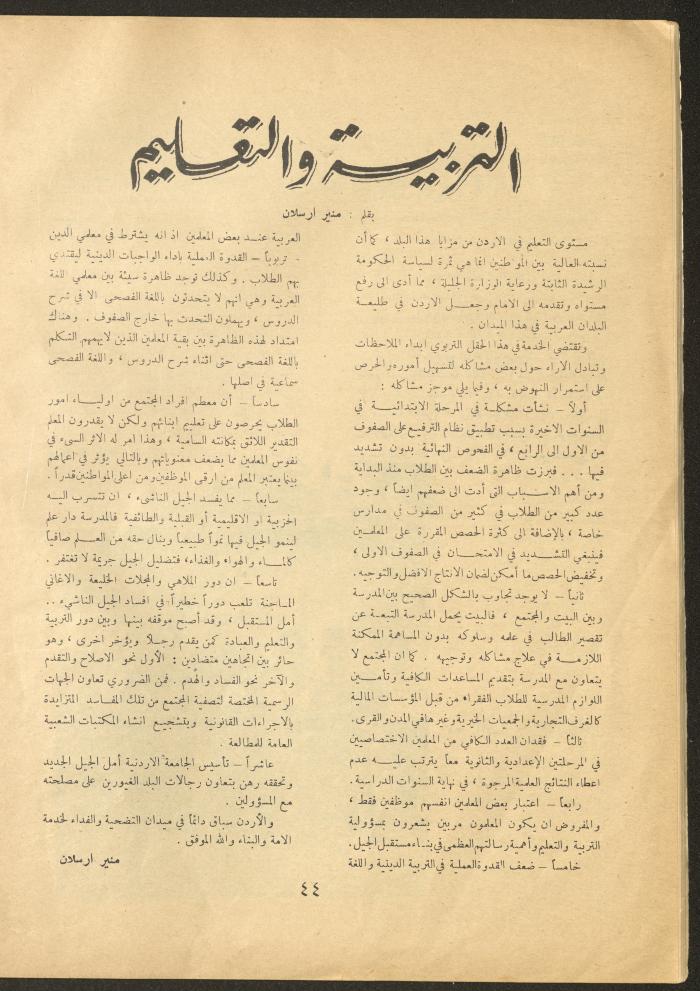 التربية والتعليم
بقلم : منير ارسلان
مستوى التعليم في الاردن من مزايا هذا البلد ، كما أن
نسبته العالية بين المواطنين انما هي ثمرة لسياسة الحكومة
الرشيدة الثابتة ورعاية الوزارة الجليلة ، مما أدى الى رفع
مستواه وتقدمه الى الامام وجعل الاردن في طليعة
البلدان العربية في هذا الميدان .
وتقتضي الخدمة في هذا الحقل التربوي ابداء الملاحظات
وتبادل الاراء حول بعض مشاكله لتسهيل أموره والحرص
على استمرار النهوض به ، وفيما يلي موجز مشاكله :
أولاً – نشأت مشكلة في المرحلة الابتدائية في
السنوات الاخيرة بسبب تطبيق نظام الترفيع على الصفوف
من الاول الى الرابع ، في الفحوص النهائية بدون تشديد
فيها . . . فبرزت ظاهرة الضعف بين الطلاب منذ البداية
ومن أهم الاسباب التى أدت الى ضعفهم ايضاً ، وجود
عدد كبير من الطلاب في كثير من الصفوف في مدارس
خاصة ، بالإضافة الى كثرة الحصص المقررة على المعلمين
فينبغي التشديد في الامتحان في الصفوف الاولى ،
وتخفيض الحصص ما أمكن لضمان الانتاج الافضل والتوجيه .
ثانياً – لا يوجد تجاوب بالشكل الصحيح بين المدرسة
وبين البيت والمجتمع ، فالبيت يحمل المدرسة التبعة عن
تقصير الطالب في علمه وسلوكه بدون المساهمة الممكنة
اللازمة في علاج مشاكله وتوجيهه . كما ان المجتمع لا
يتعاون مع المدرسة بتقديم المساعدات الكافية وتأمين
اللوازم المدرسية للطلاب الفقراء من قبل المؤسسات المالية
كالغرف التجارية والجمعيات الخيرية وغيرها في المدن والقرى .
ثالثاً – فقدان العدد الكافي من المعلمين الاختصاصيين
في المرحلتين الإعدادية والثانوية معاً يترتب عليه عدم
اعطاء النتائج العلمية المرجوة ، في نهاية السنوات الدراسية .
رابعاً – اعتبار بعض المعلمين انفسهم موظفين فقط ،
والمفروض ان يكون المعلمون مربين يشعرون بمسؤولية
التربية والتعليم وأهمية رسالتهم العظمى في بناء مستقبل الجيل .
خامساً – ضعف القدوة العملية في التربية الدينية واللغة
العربية عند بعض المعلمين اذ انه يشترط في معلمي الدين
- تربوياً – القدوة العملية باداء الواجبات الدينية ليقتدي
بهم الطلاب . وكذلك توجد ظاهرة سيئة بين معلمي اللغة
العربية وهي انهم لا يتحدثون باللغة الفصحى الا في شرح
الدروس ، ويهملون التحدث بها خارج الصفوف . وهناك
امتداد لهذه الظاهرة بين بقية المعلمين الذين لايهمهم التكلم
باللغة الفصحى حتى اثناء شرح الدروس ، واللغة الفصحى
سماعية في اصلها .
سادساً – أن معظم افراد المجتمع من اولياء امور
الطلاب يحرصون على تعليم ابنائهم ولكن لا يقدرون المعلم
التقدير اللائق بمكانته السامية ، وهذا امر له الاثر السيء في
نفوس المعلمين مما يضعف معنوياتهم وبالتالي يؤثر في اعمالهم
بينما يعتبر المعلم من ارقى الموظفين ومن اعلى المواطنين قدراً .
سابعاً – مما يفسد الجيل الناشىء ، ان تتسرب اليه
الحزبية او الاقليمية أو القبلية والطائفية فالمدرسة دار علم
لينمو الجيل فيها نمواً طبيعياً وينال حقه من العلم صافياً
كالماء والهواء والغذاء، فتضليل الجيل جريمة لا تغتفر .
تاسعاً – ان دور الملاهي والمجلات الخليعة والاغاني
الماجنة تلعب دوراً خطيراً في افساد الجيل الناشيء . .
أمل المستقبل ، وقد أصبح موقفه بينها وبين دور التربية
والتعليم والعبادة كمن يقدم رجلاً ويؤخر اخرى ، وهو
حائر بين اتجاهين متضادين : الأول نحو الاصلاح والتقدم
والآخر نحو الفساد والهدم . فمن الضروري تعاون الجهات
الرسمية المختصة لتصفية المجتمع من تلك المفاسد المتزايدة
بالاجراءات القانونية وبتشجيع انشاء المكتبات الشعبية
العامة للمطالعة .
عاشراً – تأسيس الجامعة الاردنية أمل الجيل الجديد
وتحققه رهن بتعاون رجالات البلد الغيورين على مصلحته
مع المسؤولين .
والأردن سباق دائماً في ميدان التضحية والفداء لخدمة
الامة والبناء والله الموفق .
منير ارسلان
٤٤